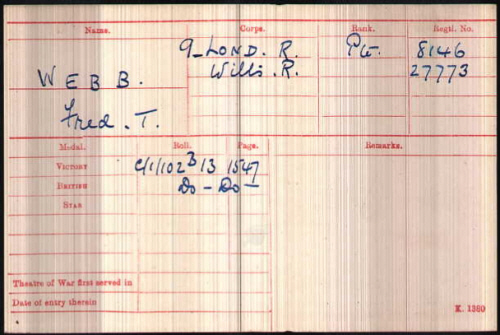 Name. Corps. Rank. Regtl. No.
WEBB. 9-LOND. R. Pte. 8146
Wilts. R. 27773
Fred. T.
Medal. Roll. Page. Remarks.
VICTORY C/1/102 B 13 1547
BRITISH Do - Do -
STAR
Theatre of War first served in
Date of entry therein
K. 1380